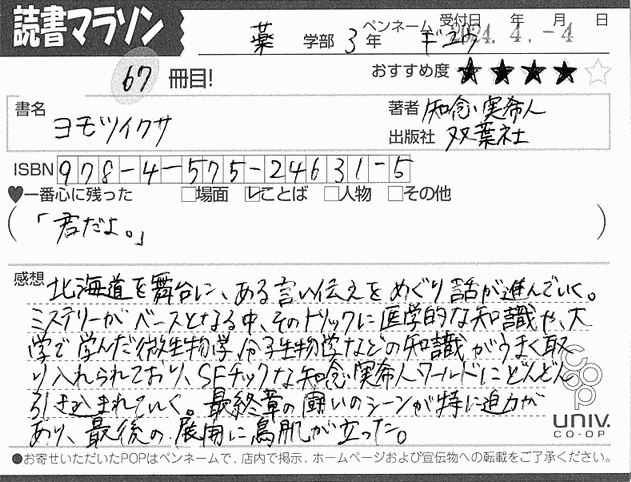 読書マラソン
薬 学部 3 年 ペンネーム ギユウ 受付日 年 月 日
24. 4. -4
67 冊目! おすすめ度 ★★★★☆
書名 ヨモツイクサ 著者 知念実希人
出版社 双葉社
ISBN 978-4-575-24631-5
♥一番心に残った □場面 ☑ことば □人物 □その他
(「君だよ。」)
感想 北海道を舞台に、ある言い伝えをめぐり話が進んでいく。
ミステリーがベースとなる中、そのトリックに医学的な知識や、大
学で学んだ微生物学、分子生物学などの知識がうまく取
り入れられており、SFチックな知念実希人ワールドにどんどん
引き込まれていく。最終章の闘いのシーンが特に迫力が
あり、最後の展開に鳥肌が立った。
coop
UNIV.
CO-OP
●お寄せいただいたPOPはペンネームで、店内で掲示、ホームページおよび宣伝物への転載をご了承ください。